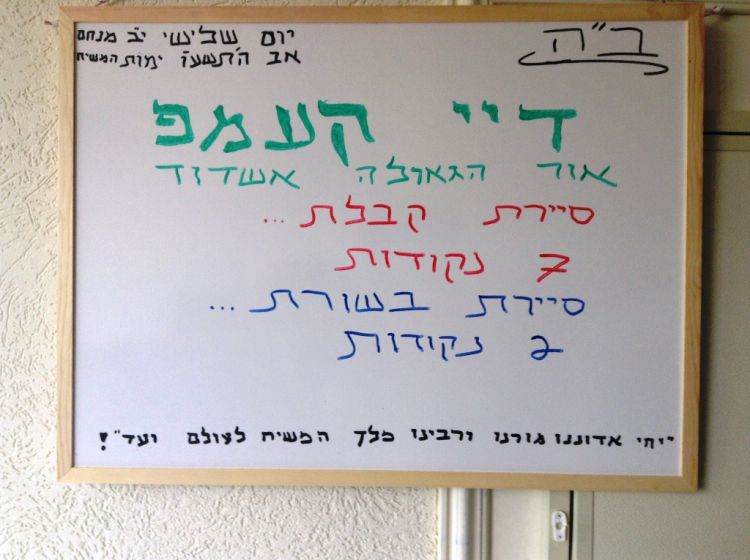 ב"ה
יום שלישי י"ב מנחם
אב ה'תשע"ז ימות המשיח
דיי קעמפ
אור הגאולה אשדוד
סיירת קבלת...
7 נקודות
סיירת בשורת...
2 נקודות
"יחי אדוננו מורנו ורבינו מלך המשיח לעולם ועד"!